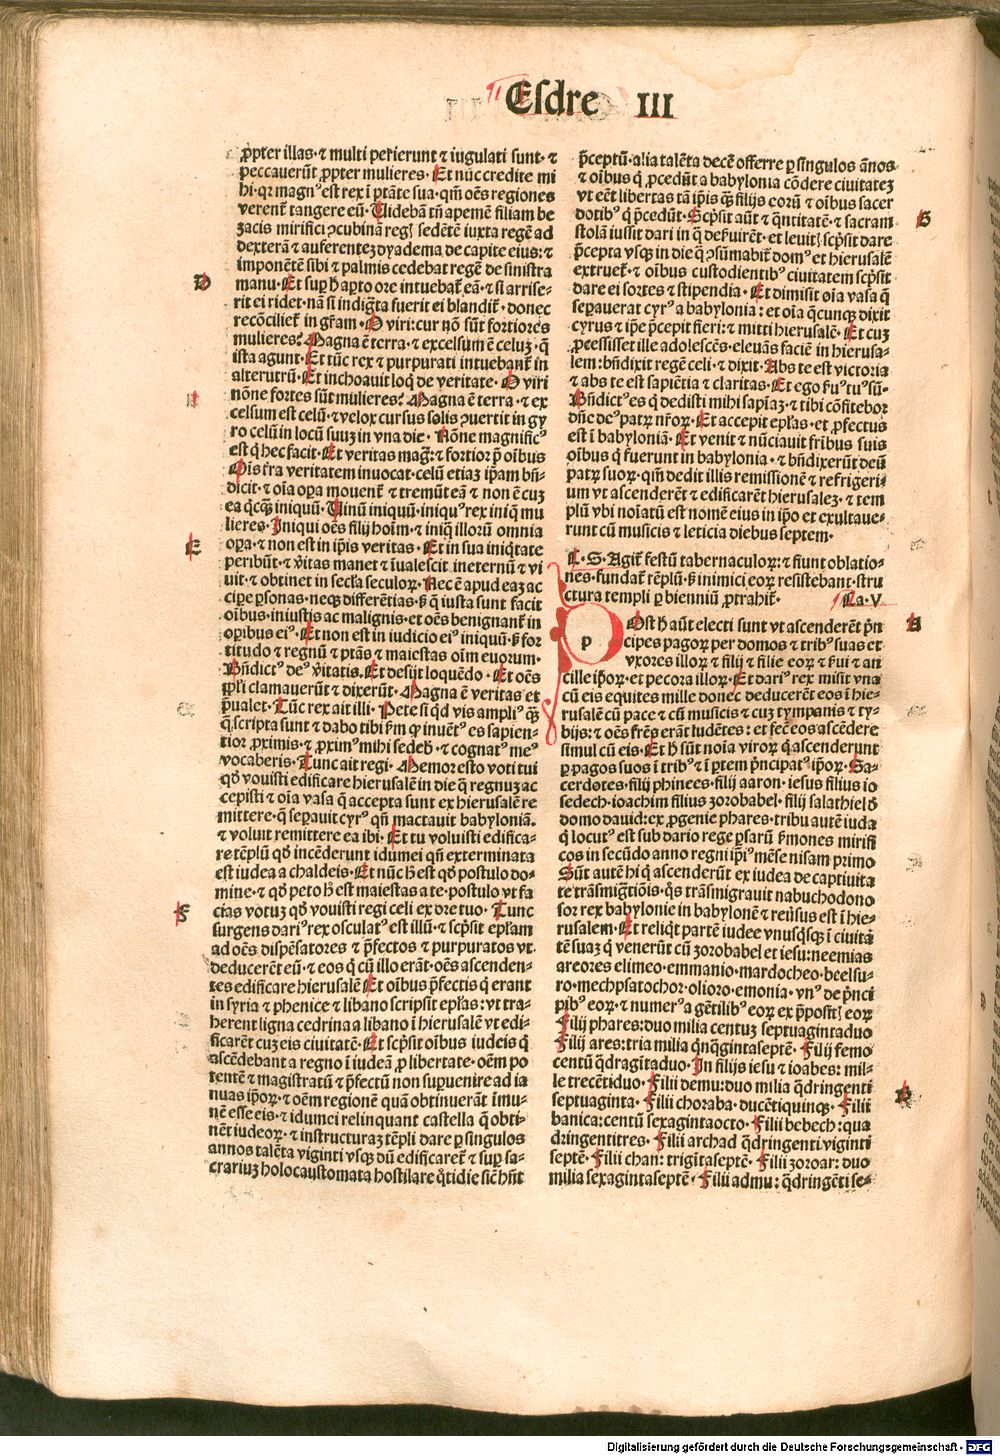 Esdre III
ꝓpter illas · ⁊ multi perierunt ⁊ iugulati sunt · ⁊
peccauerūt ꝓpter mulieres · Et nūc credite mi
hi · qꝛ magnꝰ est rex ī ptāte sua · qm̄ oēs regiones
verent̄ tangere eū · Uidebā tn̄ apemē filiam be
zacis mirifici ↄcubinā regꝭ sedētē iuxta regē ad
dexterā ⁊ auferentez dyadema de capite eius: ⁊
imponētē sibi ⁊ palmis cedebat regē de sinistra
manu · Et suꝑ h̄ aꝑto ore intuebat̄ eā · ⁊ si arrise-
rit ei ridet · nā si indigͣta fuerit ei blandit̄ · donec
recōciliet̄ in gr̄am · O viri: cur nō sūt fortiores
mulieres? Magna ē terra · ⁊ excelsum ē celuz · q̄
ista agunt · Et tūc rex ⁊ purpurati intuebant̄ in
alterutrū · Et inchoauit loq̄ de veritate · O viri
nōne fortes sūt mulieres? Magna ē terra · ⁊ ex
celsum est celū · ⁊ velox cursus solis ↄuertit in gy
ro celū in locū suuz in vna die · Nōne magnificꝰ
est q̄ hec facit · Et veritas magͣ · ⁊ fortior p̄ oībus
Oīs tr̄a veritatem inuocat · celū etiaz ip̄am bn̄-
dicit · ⁊ oīa oꝑa mouent̄ ⁊ tremūt eā ⁊ non ē cuz
ea qͥcq̄ iniquū · Uinū iniquū · iniquꝰ rex iniq̄ mu
lieres · Iniqui oēs filij hoīm · ⁊ iniq̄ illorū omnia
oꝑa · ⁊ non est in ip̄is veritas · Et in sua iniq̄tate
peribūt · ⁊ v̄itas manet ⁊ īualescit ineternū ⁊ vi
uit · ⁊ obtinet in secl̄a seculoꝝ · Nec ē apud eaz ac
ciꝑe ꝑsonas · neqꝫ differētias · s̄ q̄ iusta sunt facit
oībus · iniustis ac malignis · ⁊ oēs benignant̄ in
oꝑibus eiꝰ · Et non est in iudicio eiꝰ iniquū · s̄ for
titudo ⁊ regnū ⁊ ptās ⁊ maiestas oīm euorum ·
Bn̄dictꝰ deꝰ v̄itatis · Et desijt loquēdo · Et oēs
ppl̄i clamauerūt ⁊ dixerūt · Magna ē veritas et
p̄ualet · Tūc rex ait illi · Pete si qd̄ vis ampliꝰ q̄ꝫ
q̄ scripta sunt ⁊ dabo tibi s̄m q̄ inuētꝰ es sapien-
tior ꝓximis · ⁊ ꝓximꝰ mihi sedeb̄ · ⁊ cognatꝰ meꝰ
vocaberis · Tunc ait regi · Memor esto voti tui
qd̄ vouisti edificare hierusalē in die q̄ regnuz ac
cepisti ⁊ oīa vasa q̄ accepta sunt ex hierusalē re
mittere · q̄ seꝑauit cyrꝰ qn̄ mactauit babyloniā ·
⁊ voluit remittere ea ibi · Et tu voluisti edifica-
re tēplū qd̄ incēderunt idumei qn̄ exterminata
est iudea a chaldeis · Et nūc h̄ est qd̄ postulo do-
mine · ⁊ qd̄ peto h̄ est maiestas a te · postulo vt fa
cias votuz qd̄ vouisti regi celi ex ore tuo · Tunc
surgens dariꝰ rex osculatꝰ est illū · ⁊ scp̄sit epl̄am
ad oēs dispēsatores ⁊ p̄fectos ⁊ purpuratos vt ·
deducerēt eū · ⁊ eos q̄ cū illo erāt · oēs ascenden-
tes edificare hierusalē Et oībus p̄fectis q̄ erant
in syria ⁊ phenice ⁊ libano scripsit epl̄as: vt tra-
herent ligna cedrina a libano ī hierusalē vt edi-
ficarēt cuz eis ciuitatē · Et scp̄sit oībus iudeis q̄
ascēdebant a regno ī iudeā ꝓ libertate · oēm po
tentē ⁊ magistratū ⁊ p̄fectū non suꝑuenire ad ia
nuas ip̄oꝝ · ⁊ oēm regionē quā obtinuerāt īmu-
nē esse eis · ⁊ idumei relinquant castella q̄ obti-
nēt iudeoꝝ · ⁊ instructuraz tēpli dare ꝑ singulos
annos talēta viginti vsqꝫ dū edificaret̄ · ⁊ suꝑ sa-
crariuz holocaustomata hostilare q̄tidie sic̄ hn̄t
D
E
F
p̄ceptū · alia talēta decē offerre ꝑ singulos ānos ·
⁊ oībus q̄ ꝓcedūt a babylonia cōdere ciuitatez
vt eēt libertas tā ip̄is qͣꝫ filijs eorū ⁊ oībus sacer
dotibꝰ q̄ p̄cedūt · Scp̄sit aūt ⁊ q̄ntitatē · ⁊ sacram
stolā iussit dari in q̄ des̄uirēt · et leuitꝭ scp̄sit dare
p̄cepta vsqꝫ in die q̄ ↄsūmabit̄ domꝰ et hierusalē
extruet̄ · ⁊ oībus custodientibꝰ ciuitatem scp̄sit
dare ei sortes ⁊ stipendia · Et dimisit oīa vasa q̄
seꝑauerat cyrꝰ a babylonia: et oīa q̄cunqꝫ dixit
cyrus ⁊ ip̄e p̄cepit fieri: ⁊ mitti hierusalē · Et cuz
ꝓcessisset ille adolescēs · eleuās faciē in hierusa-
lem: bn̄dixit regē celi · ⁊ dixit · Abs te est victoria
⁊ abs te est sapiētia ⁊ claritas · Et ego s̄uꝰ tuꝰ sū ·
Bn̄dictꝰ es q̄ dedisti mihi sapīaz · ⁊ tibi cōfitebor
dn̄e deꝰ patꝝ nr̄oꝝ · Et accepit epl̄as · et ꝓfectus
est ī babyloniā · Et venit ⁊ nūciauit fribus suis
oībus q̄ fuerunt in babylonia · ⁊ bn̄dixerūt deū
patꝝ suoꝝ · qm̄ dedit illis remissionē ⁊ refrigeri-
um vt ascenderēt ⁊ edificarēt hierusalez · ⁊ tem
plū vbi noīatū est nomē eius in ip̄o et exultaue-
runt cū musicis ⁊ leticia diebus septem ·
C · S · Agit̄ festū tabernaculoꝝ: ⁊ fiunt oblatio-
nes · fundat̄ tēplū · s̄ inimici eoꝝ resistebant · stru
ctura templi ꝑ bienniū ꝓtrahit̄ · Ca · V
POst h̄ aūt electi sunt vt ascenderēt p̄n
cipes pagoꝝ per domos ⁊ tribꝰ suas et
vxores illoꝝ ⁊ filij ⁊ filie eoꝝ ⁊ s̄ui ⁊ an
cille ip̄oꝝ · et pecora illoꝝ · Et dariꝰ rex misit vna
cū eis equites mille donec deducerēt eos ī hie-
rusalē cū pace ⁊ cū musicis ⁊ cuz tympanis ⁊ ty-
bijs: ⁊ oēs fr̄es erāt ludētes: et fec̄ eos ascēdere
simul cū eis · Et h̄ sūt noīa viroꝝ q̄ ascenderunt
ꝑ pagos suos ī tribꝰ ⁊ ī ꝑtem p̄ncipatꝰ ip̄oꝝ · Sa-
cerdotes · filij phinees · filij aaron · iesus filius io
sedech · ioachim filius zorobabel · filij salathiel d̄
domo dauid: ex ꝓgenie phares · tribu autē iuda
q̄ locutꝰ est sub dario rege ꝑsarū s̄mones mirifi
cos in secūdo anno regni ip̄iꝰ mēse nisam primo
Sūt autē hi q̄ ascenderūt ex iudea de captiuita
te trāsmigͣtiōis · qͦs trāsmigrauit nabuchodono
sor rex babylonie in babylonē ⁊ reu̇sus est ī hie-
rusalem · Et reliqͥt partē iudee vnusqͥsqꝫ ī ciuitā
tē suaꝫ q̄ venerūt cū zorobabel et iesu: neemias
areores elimeo · emmanio · mardocheo · beelsu-
ro · mechpsatochor · olioro · emonia · vnꝰ de p̄nci
pibꝰ eoꝝ · ⁊ numerꝰ a gētilibꝰ eoꝝ ex p̄positꝭ eoꝝ
Filij phares: duo milia centuz septuagintaduo
Filij ares: tria milia qͥnqͣgintaseptē · Filij femo
centū qͣdragītaduo · In filijs iesu ⁊ ioabes: mil-
le trecētiduo · Filii demu: duo milia qͣdringenti
septuaginta · Filii choraba · ducētiquinqꝫ · Filii
banica: centū sexagintaocto · Filii bebech: qua
dringentitres · Filii archad qͣdringenti viginti
septē · Filii chan: trigītaseptē · Filii zoroar: duo
milia sexagintaseptē · Filii admu: qͣdringēti se-
G
A
B
Digitalisierung gefördert durch die Deutsche Forschungsgemeinschaft - DFG